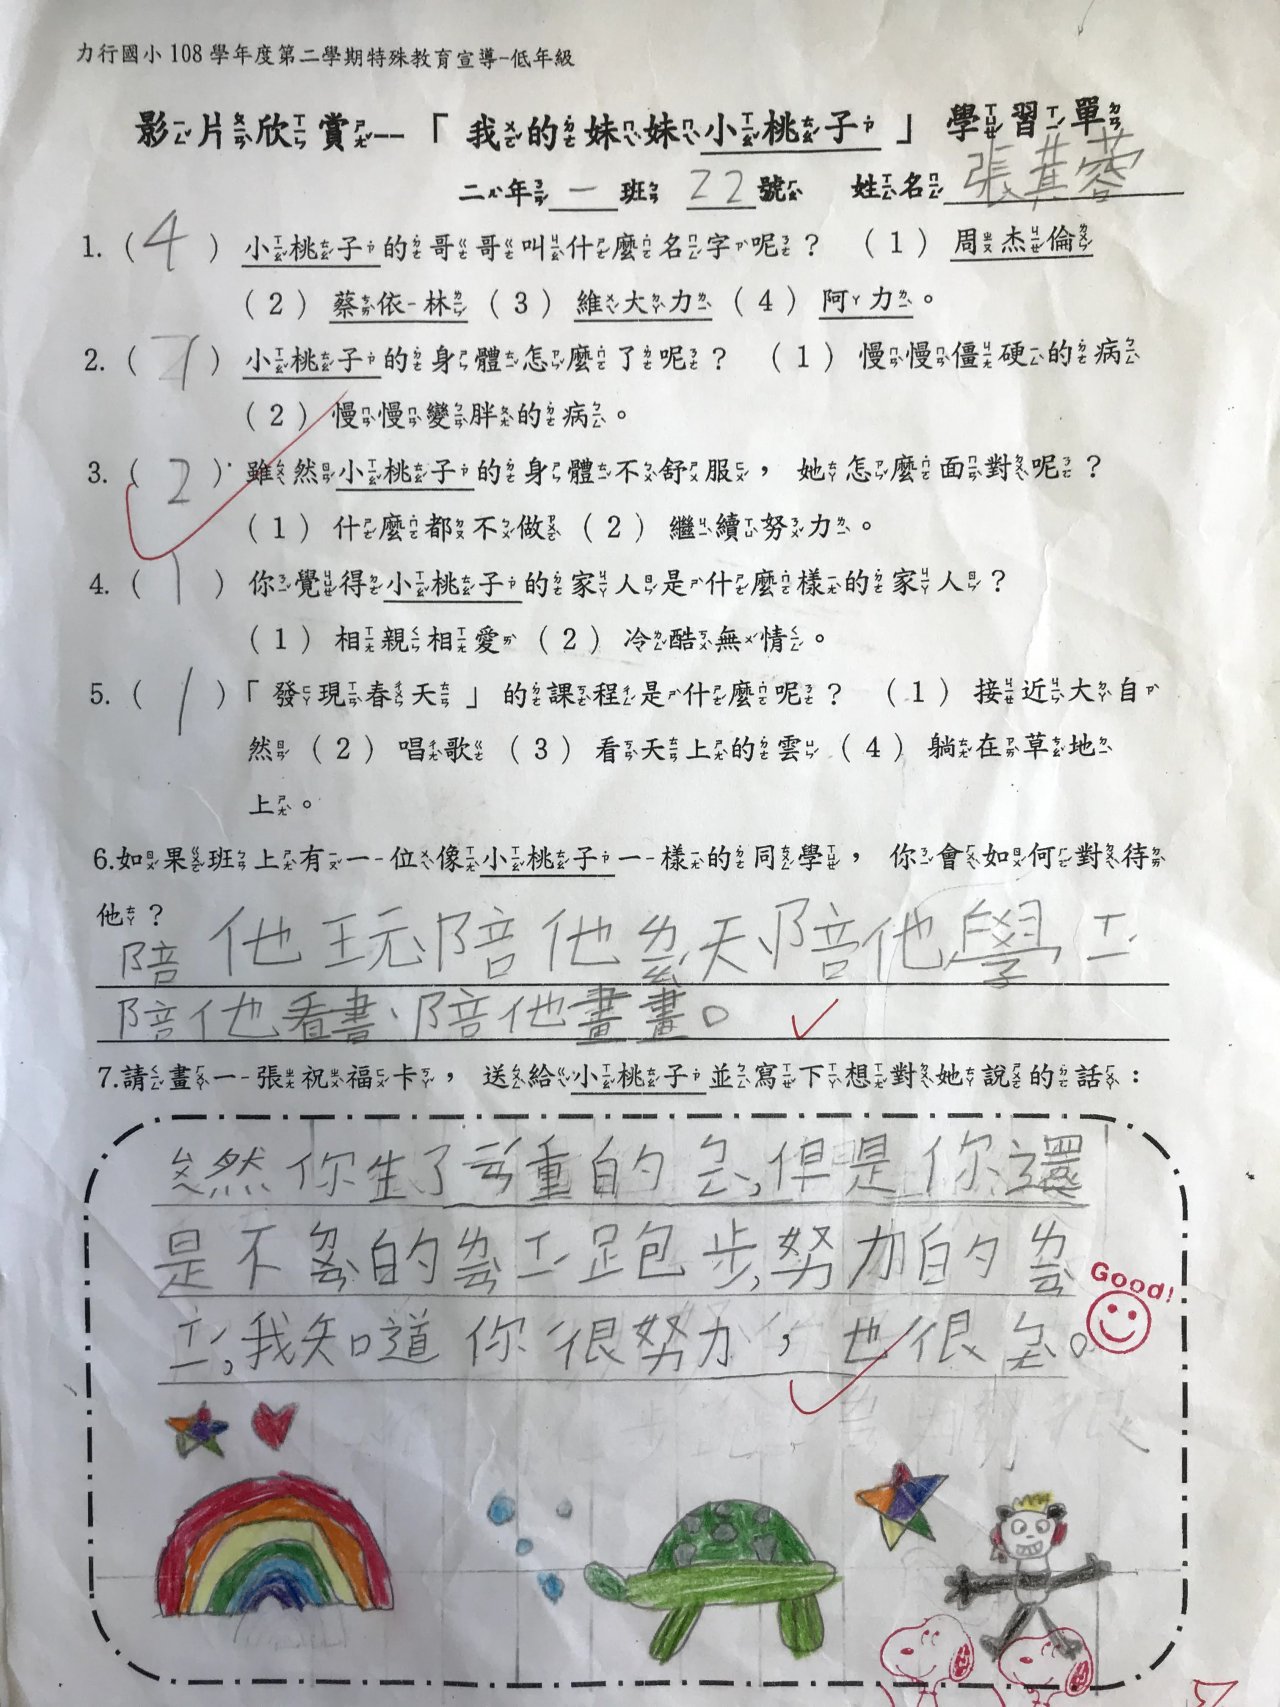 力行國小 108 學年度第二學期特殊教育宣導-低年級
影片欣賞—「我的妹妹小桃子」學習單
二年一班 22號 姓名張蓂蓉
1. ( 4 ) 小桃子的哥哥叫什麼名字呢？ (1) 周杰倫
(2) 蔡依林 (3) 維大力 (4) 阿力。
2. ( 1 ) 小桃子的身體怎麼了呢？ (1) 慢慢僵硬的病
(2) 慢慢變胖的病。
3. ( 2 ) 雖然小桃子的身體不舒服，她怎麼面對呢？
(1) 什麼都不做 (2) 繼續努力。
4. ( 1 ) 你覺得小桃子的家人是什麼樣的家人？
(1) 相親相愛 (2) 冷酷無情。
5. ( 1 ) 「發現春天」的課程是什麼呢？ (1) 接近大自
然 (2) 唱歌 (3) 看天上的雲 (4) 躺在草地
上。
6.如果班上有一位像小桃子一樣的同學，你會如何對待
他？
陪他玩、陪他ㄌㄠˊ天、陪他學ㄒㄧˊ
陪他看書、陪他畫畫。
7.請畫一張祝福卡，送給小桃子並寫下想對她說的話：
ㄙㄨㄟ然你生了ㄧㄢˊ重的ㄅㄧㄥˋ,但是你還
是不ㄉㄨㄢˋ的ㄌㄧㄢˋㄒㄧˊ跑步,努力的ㄌㄧㄢˋ
ㄒㄧˊ,我知道你很努力，也很ㄤˋ。
Good!